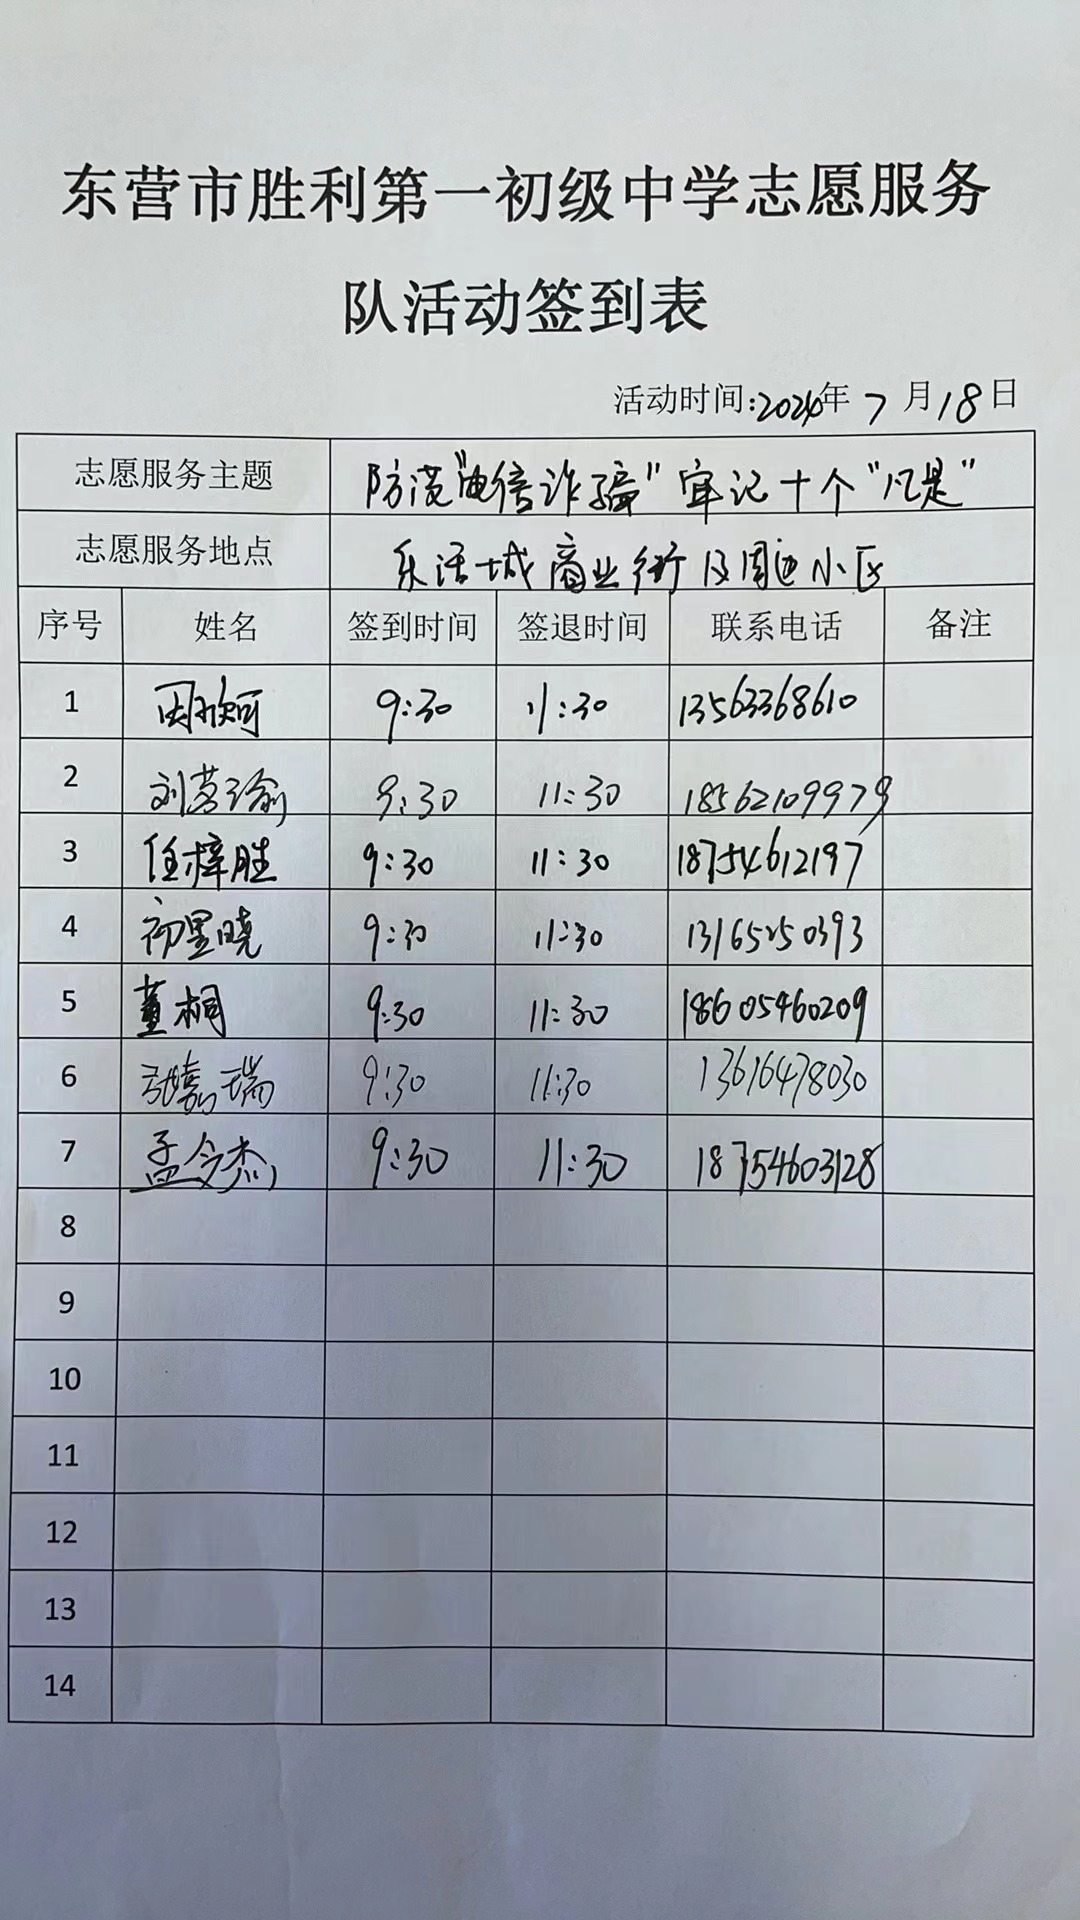 东营市胜利第一初级中学志愿服务
队活动签到表
活动时间:2024年 7 月 18 日
志愿服务主题 防范"电信诈骗"牢记十个"凡是"
志愿服务地点 乐活城商业街及周边小区
序号 姓名 签到时间 签退时间 联系电话 备注
1 9:30 11:30 13563368610
2 9:30 11:30 18562109979
3 任梓胜 9:30 11:30 18754612197
4 初星晓 9:30 11:30 13165250393
5 董桐 9:30 11:30 18605460209
6 张嘉瑞 9:30 11:30 13616478030
7 孟令杰 9:30 11:30 18754603128
8
9
10
11
12
13
14